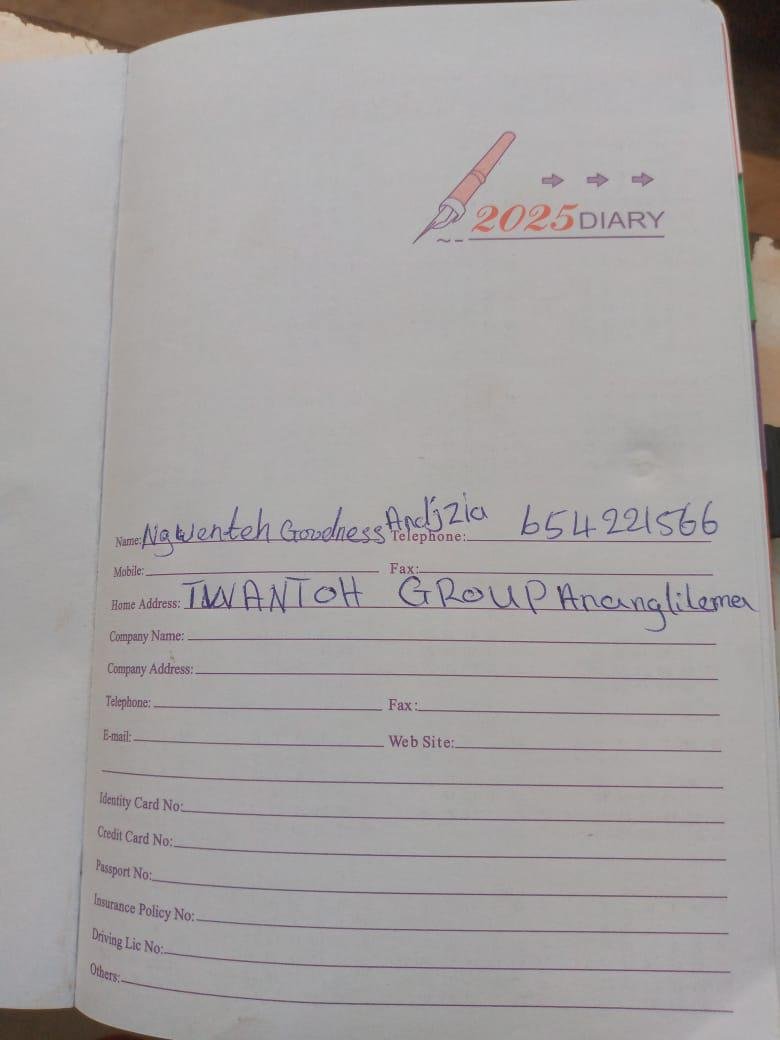 2025 DIARY
Name: Ngwenteh Goodness Andjzia Telephone: 654221566
Mobile: Fax:
Home Address: TWANTOH GROUP Ananglilemer
Company Name:
Company Address:
Telephone: Fax:
E-mail: Web Site:
Identity Card No:
Credit Card No:
Passport No:
Insurance Policy No:
Driving Lic No:
Others: